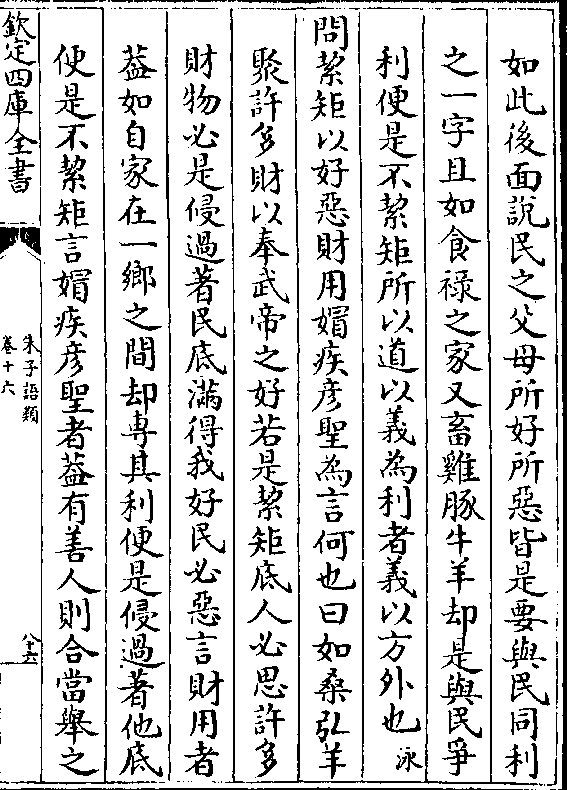 如此後面說民之父母所好所惡皆是要與民同利
之一字且如食祿之家又畜雞豚牛羊却是與民爭
利便是不絜矩所以道以義為利者義以方外也泳
問絜矩以好惡財用媢疾彦聖為言何也曰如桑弘羊
聚許多財以奉武帝之好若是絜矩底人必思許多
財物必是侵過著民底滿得我好民必惡言財用者
葢如自家在一鄉之間却専其利便是侵過著他底
便是不絜矩言媢疾彦聖者葢有善人則合當舉之
欽定四庫全書
朱子語類
卷十六
八十六